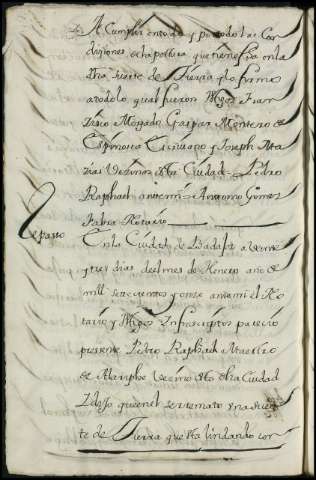 A Cumplir en todo y por todo las Con
diciones de la postura que tiene fha en la
dha suerte de Tierra y lo firmo
a todo lo qual fueron tgos Fran
cisco Morgado Gaspar Montero de
Espinosa Escrivano y Joseph Ma
zias Vezinos desta Ciudad = Pedro
Raphael = ante mi = Antonio Gomez
Fabra Notario
Tespaso
En la Ciudad de Badajoz a veinte
y tres dias del mes de Henero año de
mill setecientos y onze ante mi el No
tario y tgos Infrascriptos parecio
presente Pedro Raphael Maestro
de Alariphe vecino desta dha Ciudad
I dijo que en el se remato una suer
te de Tierra que esta lindando con